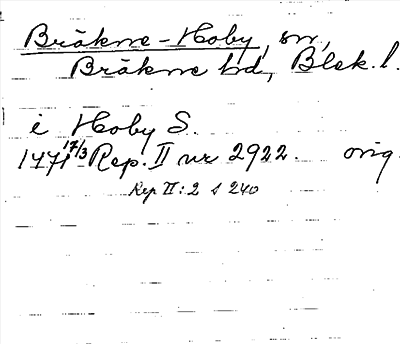 Bräkne-Hoby, sn,
Bräkne hd, Blek. l.
i Hoby S.
1471 17/3 Rep. II nr 2922. orig.
Rep II:2 s 240